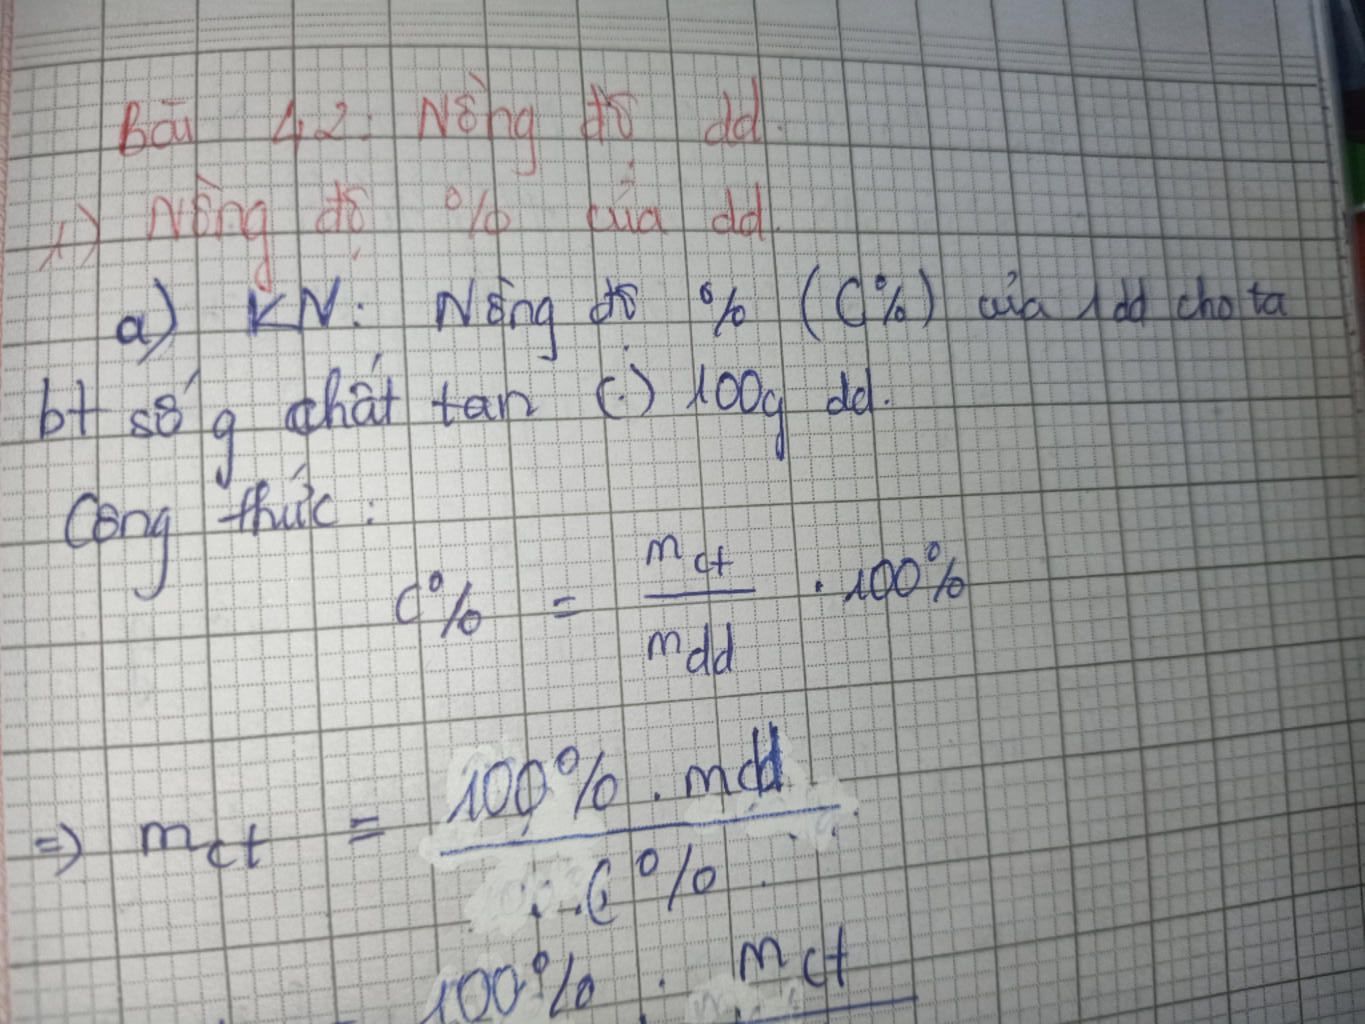 Bài 42: Nồng độ dd.
1) Nồng độ % của dd.
a) KN: Nồng độ % (C%) của 1 dd cho ta
bt số g chất tan (.) 100g dd.
Công thức:
C% = mct / mdd . 100%
=> mct = 100% . mdd / C%
100% . mct